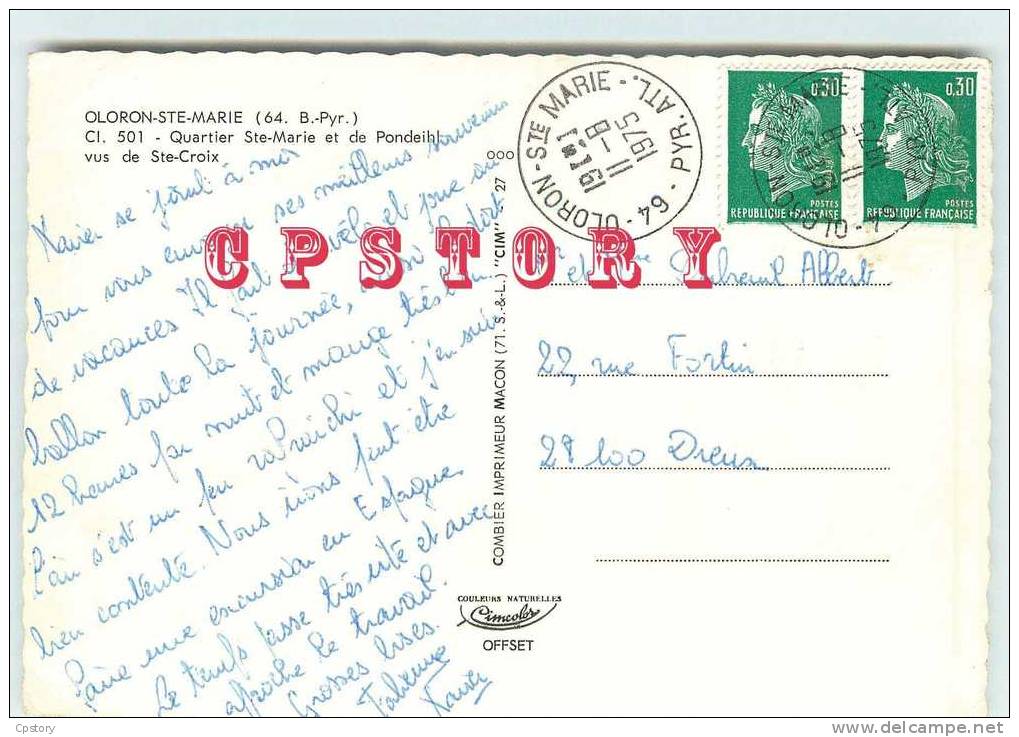 OLORON-STE-MARIE (64. B.-Pyr.)
Cl. 501 - Quartier Ste-Marie et de Pondeihl
vus de Ste-Croix
Xavier se joint à moi
pour vous envoyer ses meilleurs souvenirs
de vacances Il fait du vélo et joue au
ballon toute la journée, aussi dort
12 heures par nuit et mange très bien
l'air s'est un peu rafraîchi et j'en suis
bien contente. Nous irons peut être
faire une excursion en Espagne.
Le temps passe très vite et avec
approche le travail.
Grosses bises.
Fabienne
Xavier
000
27
COMBIER IMPRIMEUR MACON (71. S.-&-L.) "CIM"
COULEURS NATURELLES
Cimcolor
OFFSET
OLORON-STE MARIE - 64 - PYR. ATL.
16H.
11 - 8
1975
0,30
POSTES
REPUBLIQUE FRANÇAISE
0,30
POSTES
REPUBLIQUE FRANÇAISE
et Albert
22, rue Fortin
28100 Dreux
CPSTORY
Cpstory
www.delcampe.net